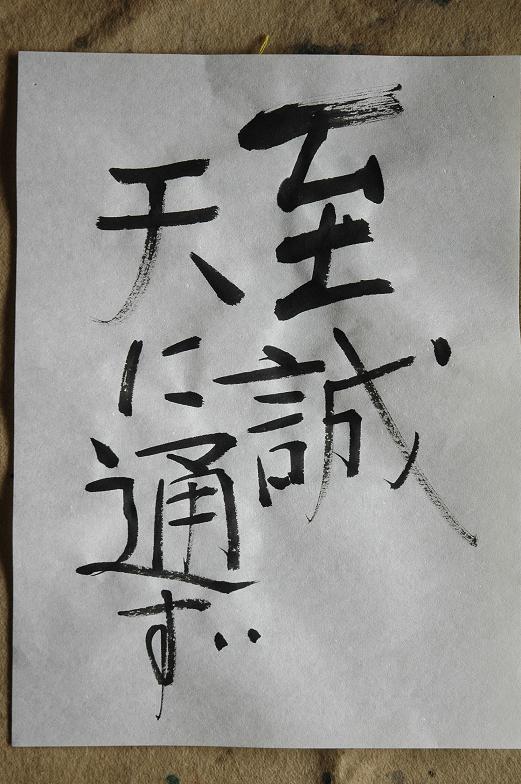 至誠
天に通ず